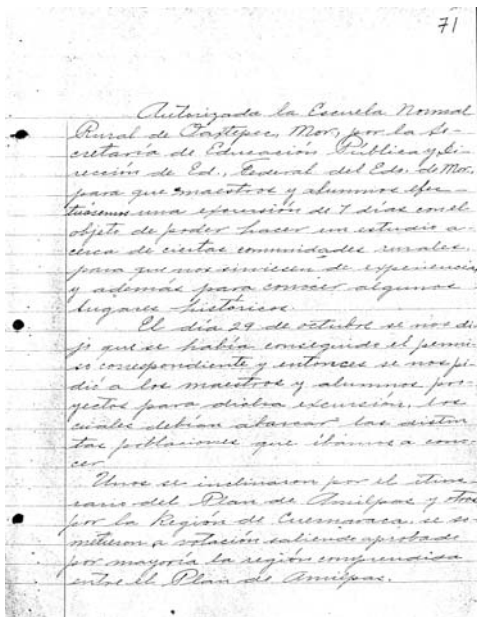 71
Autorizada la Escuela Normal
Rural de Oaxtepec, Mor, por la Se-
cretaría de Educación Pública y Di-
rección de Ed. Federal del Edo. de Mor.
para que maestros y alumnos efec-
tuásemos una excursión de 7 días con el
objeto de poder hacer un estudio a-
cerca de ciertas comunidades rurales,
para que nos sirviesen de experiencia
y además para conocer algunos
lugares históricos.
El día 29 de octubre se nos di-
jo que se había conseguido el permi-
so correspondiente y entonces se nos pi-
dió a los maestros y alumnos pro-
yectos para dicha excursión, los
cuales debían abarcar las distin
tas poblaciones que íbamos a cono-
cer.
Unos se inclinaron por el itine-
rario del Plan de Amilpas y otros
por la Región de Cuernavaca, se so-
metieron a votación saliendo aprobada
por mayoría la región comprendida
entre el Plan de Amilpas.